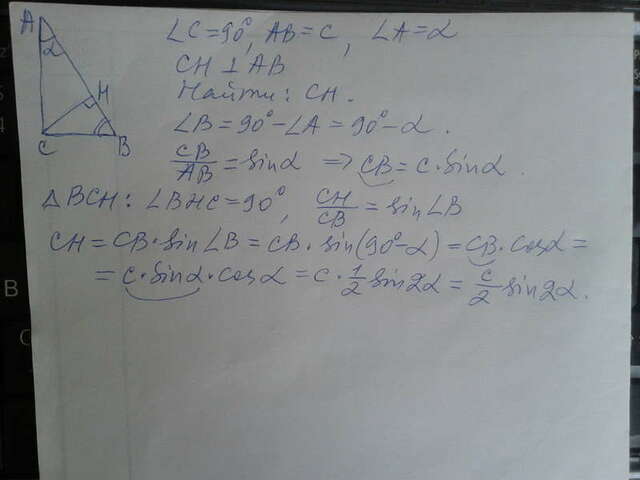 ∠C=90°, AB=c, ∠A=α
CH⊥AB
Найти: CH.
∠B=90°-∠A=90°-α.
CB/AB=sinα => CB=c·sinα.
△BCH: ∠BHC=90°, CH/CB=sin∠B
CH=CB·sin∠B=CB·sin(90°-α)=CB·cosα=
=c·sinα·cosα=c·1/2 sin2α=c/2 sin2α.
A
α
H
C
B